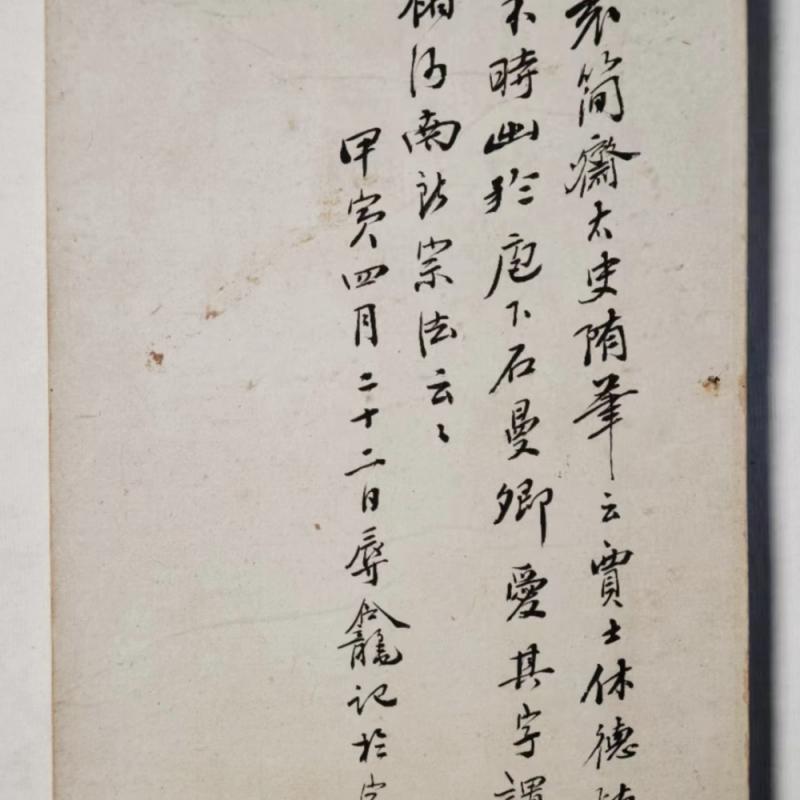 簡齋太史隨筆云賈士休德
時出於庖下石曼卿愛其字謂
河南宗法云〻
甲寅四月二十二日龕記於